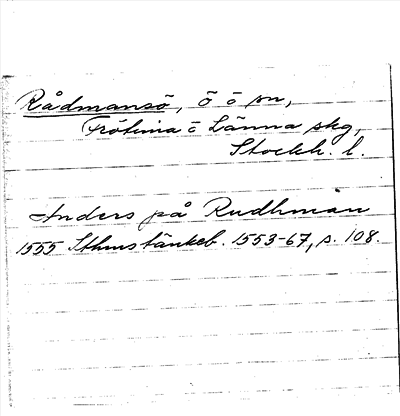 Rådmansö, ö ö sn,
Frötuna ö Länna skg,
Stockh. l.
Anders på Rudhman
1555 Sthms tänkeb. 1553-67, s. 108.